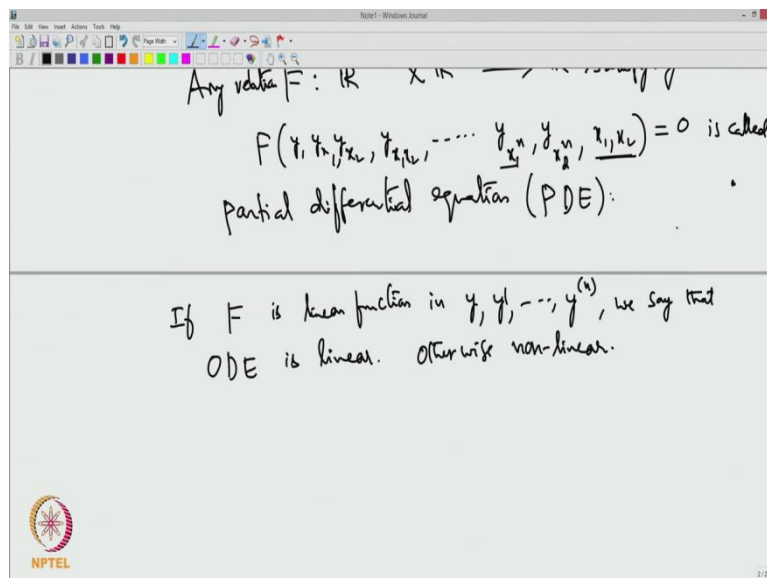 Note1 - Windows Journal
File Edit View Insert Actions Tools Help
Page Width
B I
Any relation F : ℝ x ℝ ⟶ ℝ satisfying
F(y, y_{x_1}, y_{x_2}, y_{x_1x_2}, ----- y_{x_1^n}, y_{x_2^n}, x_1, x_2) = 0 is called
partial differential equation (PDE):
If F is linear function in y, y', ---, y^{(n)}, we say that
ODE is linear. Otherwise non-linear.
NPTEL
2/2